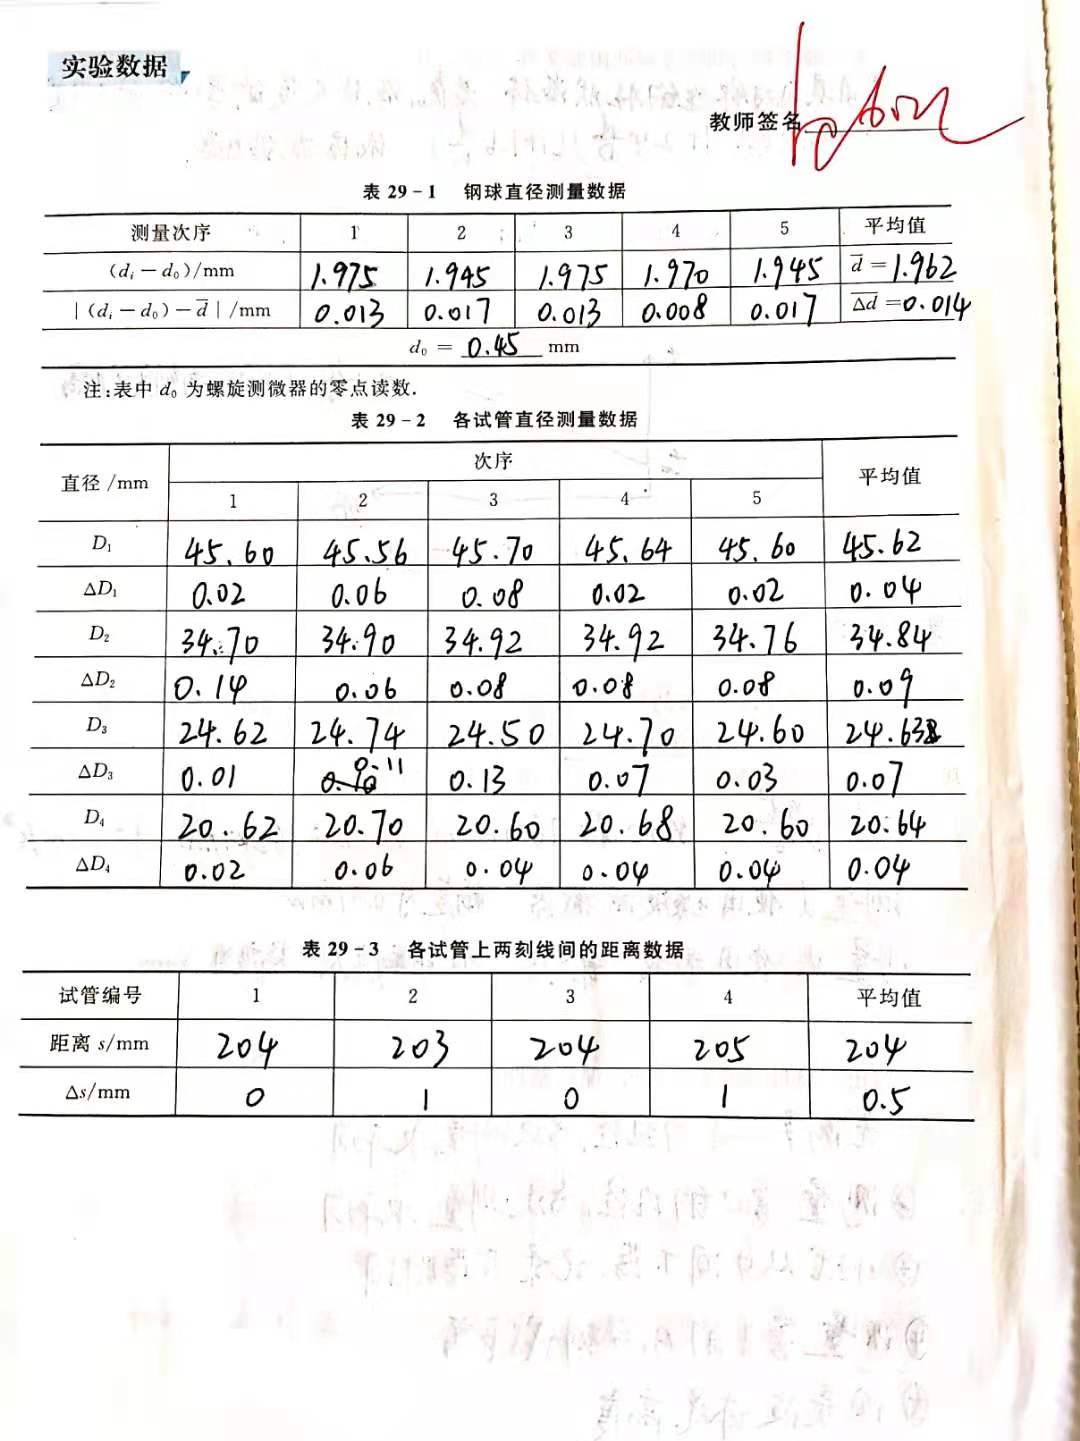 实验数据
教师签名
表 29-1 钢球直径测量数据
测量次序 1 2 3 4 5 平均值
(dᵢ-d₀)/mm 1.975 1.945 1.975 1.970 1.945 d̅=1.962
|(dᵢ-d₀)-d̅|/mm 0.013 0.017 0.013 0.008 0.017 Δd̅=0.014
d₀ = 0.45 mm
注:表中 d₀ 为螺旋测微器的零点读数.
表 29-2 各试管直径测量数据
直径/mm 次序 平均值
1 2 3 4 5
D₁ 45.60 45.56 45.70 45.64 45.60 45.62
ΔD₁ 0.02 0.06 0.08 0.02 0.02 0.04
D₂ 34.70 34.90 34.92 34.92 34.76 34.84
ΔD₂ 0.14 0.06 0.08 0.08 0.08 0.09
D₃ 24.62 24.74 24.50 24.70 24.60 24.63
ΔD₃ 0.01 0.11 0.13 0.07 0.03 0.07
D₄ 20.62 20.70 20.60 20.68 20.60 20.64
ΔD₄ 0.02 0.06 0.04 0.04 0.04 0.04
表 29-3 各试管上两刻线间的距离数据
试管编号 1 2 3 4 平均值
距离 s/mm 204 203 204 205 204
Δs/mm 0 1 0 1 0.5